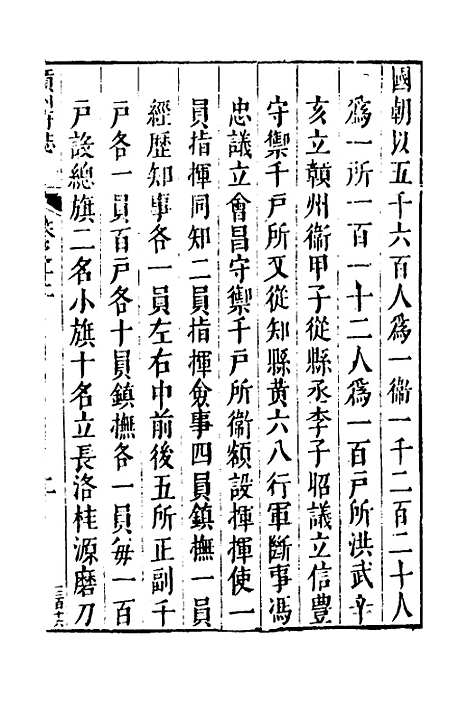 國朝以五千六百人爲一衞一千二百二十人
爲一所一百一十二人爲一百戸所洪武辛
亥立贛州衞甲子從縣丞李子昭議立信豊
守禦千戸所又從知縣黄六八行軍斷事馮
忠議立會昌守禦千戸所衞額設揮揮使一
員指揮同知二員指揮僉事四員鎮撫一員
經歷知事各一員左右中前後五所正副千
戸各一員百戸各十員鎮撫各一員毎一百
戸設總旗二名小旗十名立長洛桂源磨刀
府志